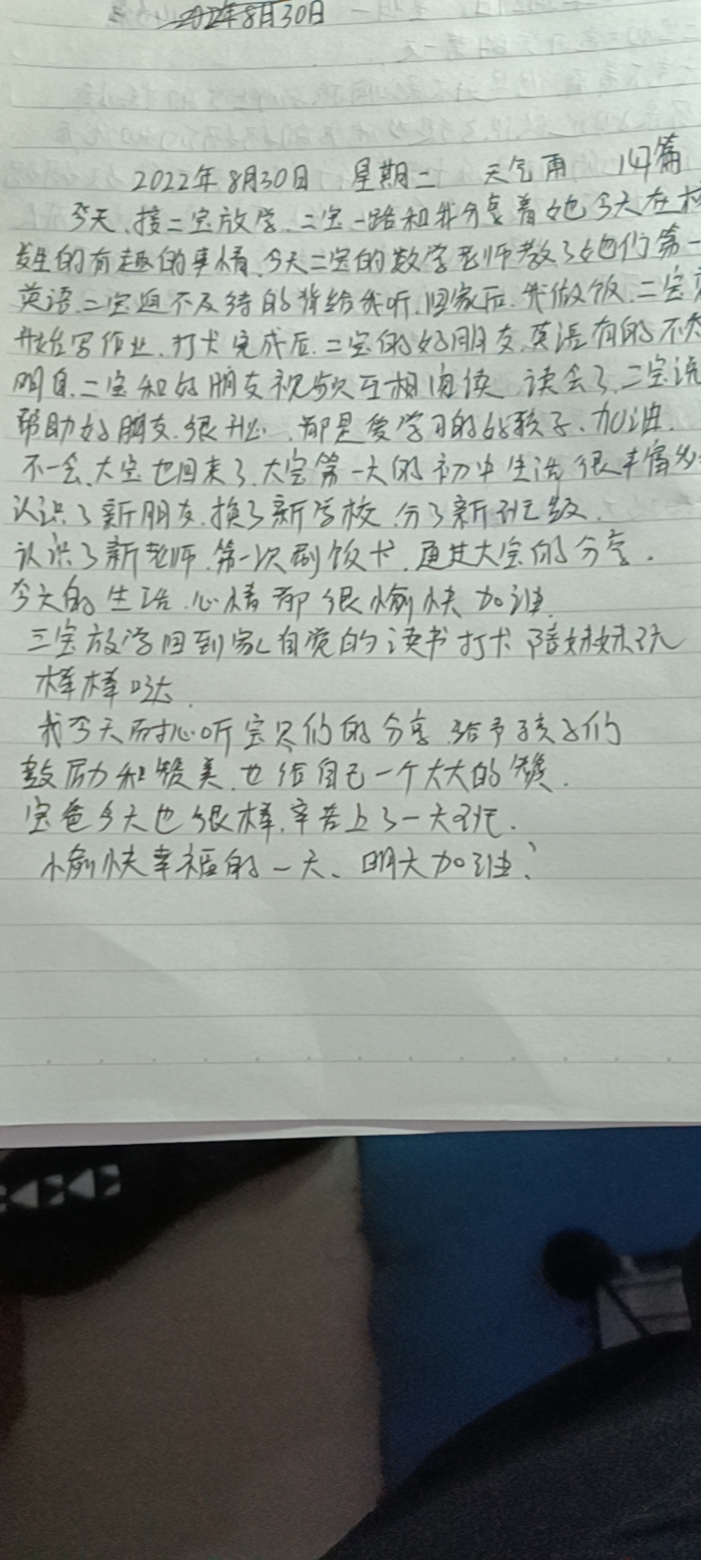 2022年8月30日
2022年8月30日 星期二 天气雨 147篇
今天、接二宝放学、二宝一路和我分享着她今天在校
发生的有趣的事情、今天二宝的数学老师教了她们第一
英语、二宝迫不及待的背给我听、回家后、我做饭、二宝
开始写作业、打卡完成后、二宝的好朋友、英语有的不
明白、二宝和好朋友视频互相阅读、读会了、二宝说
帮助好朋友、很开心、都是爱学习的好孩子、加油、
不一会、大宝也回来了、大宝第一天的初中生活很丰富
认识了新朋友、换了新学校、分了新班级、
认识了新老师、第一次刷饭卡、通过大宝的分享、
今天的生活、心情都很愉快 加油、
三宝放学回到家自觉的读书打卡 陪妹妹玩
棒棒哒、
我今天耐心听宝贝们的分享、给予孩子们
鼓励和赞美、也给自己一个大大的赞、
宝爸今天也很棒、辛苦上了一天班、
愉快幸福的一天、明天加油!